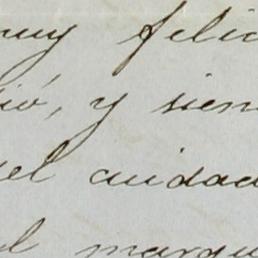 muy felic
ió, y sien
el cuidad
el marqu